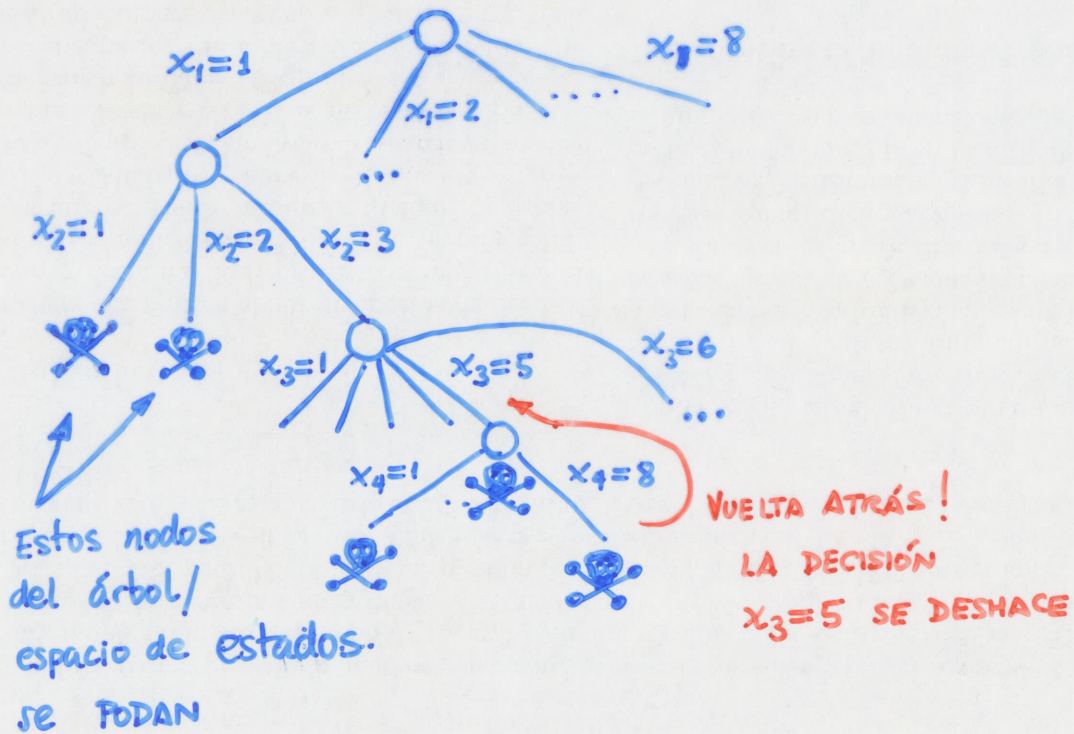 x₁=1
x₁=2
.....
x₁=8
...
x₂=1
x₂=2
x₂=3
x₃=1
x₃=5
x₃=6
...
x₄=1
...
x₄=8
Estos nodos
del árbol/
espacio de estados.
se PODAN
VUELTA ATRÁS!
LA DECISIÓN
x₃=5 SE DESHACE